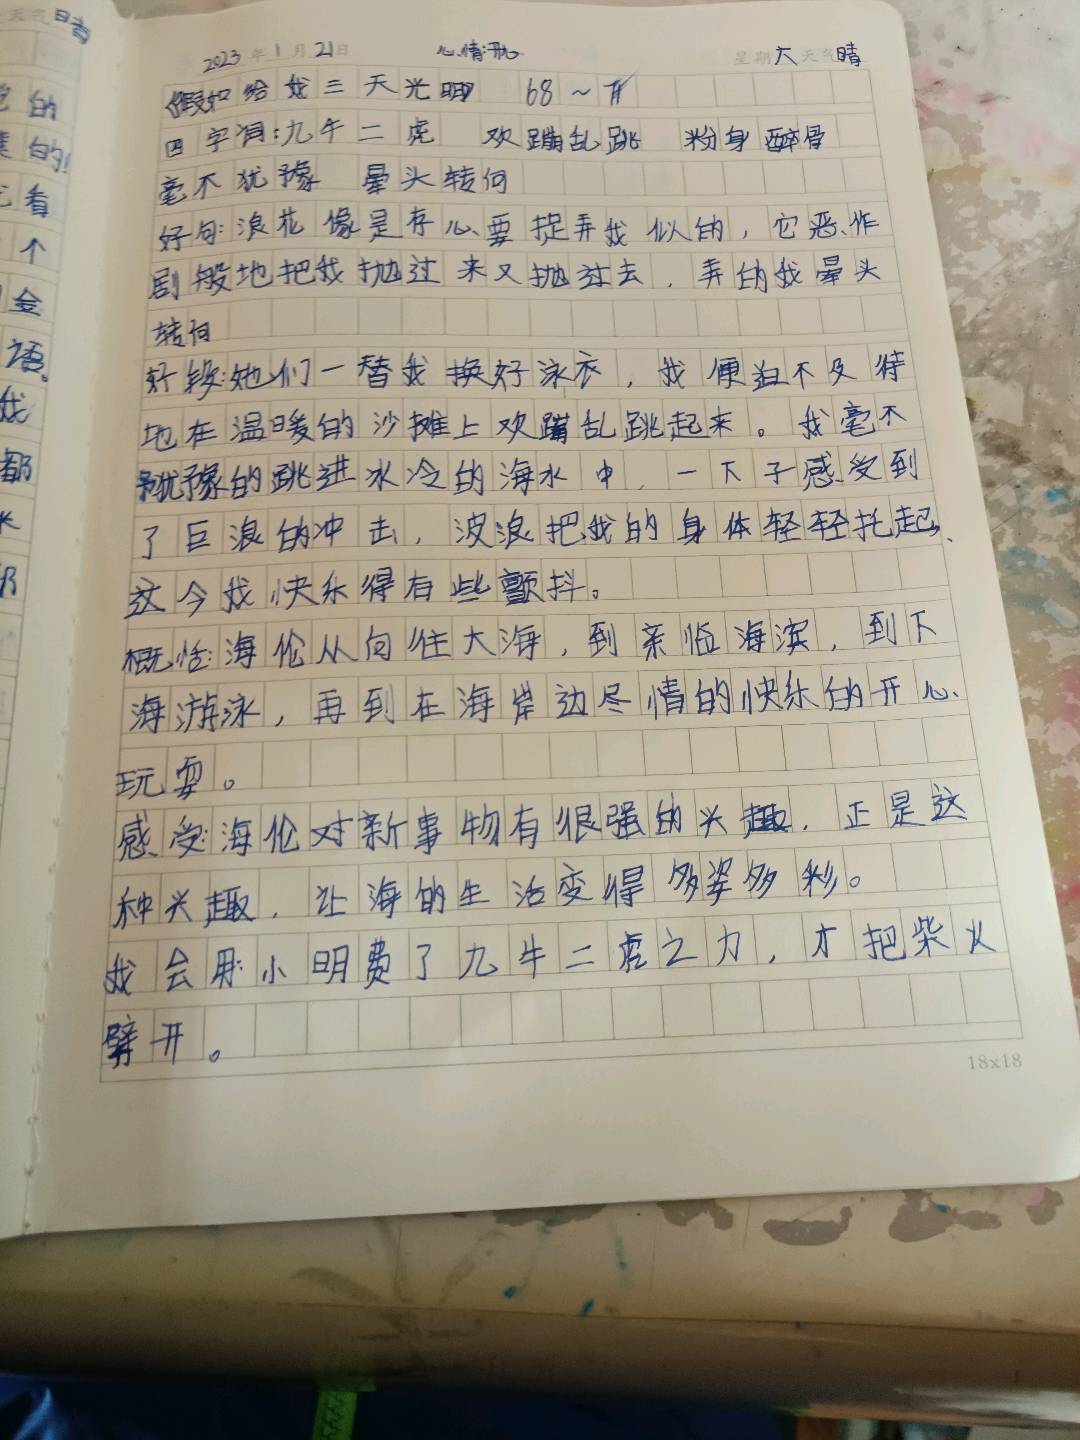 天气 晴
的
的!
看
个
金
语。
我
都
2023年1月21日 心情: 星期六 天气晴
《假如给我三天光明 68~
四字词:九牛二虎 欢蹦乱跳 粉身醉骨
毫不犹豫 晕头转向
好句:浪花像是存心要捉弄我似的,它恶作
剧般地把我抛过来又抛过去,弄的我晕头
转向
好段:她们一替我换好泳衣,我便迫不及待
地在温暖的沙摊上欢蹦乱跳起来。我毫不
犹豫的跳进冰冷的海水中,一下子感受到
了巨浪的冲击,波浪把我的身体轻轻托起、
这令我快乐得有些颤抖。
概括:海伦从向往大海,到亲临海滨,到下
海游泳,再到在海岸边尽情的快乐的开心
玩耍。
感受:海伦对新事物有很强的兴趣,正是这
种兴趣,让海的生活变得多姿多彩。
我会用:小明费了九牛二虎之力,才把柴火
劈开。
18x18